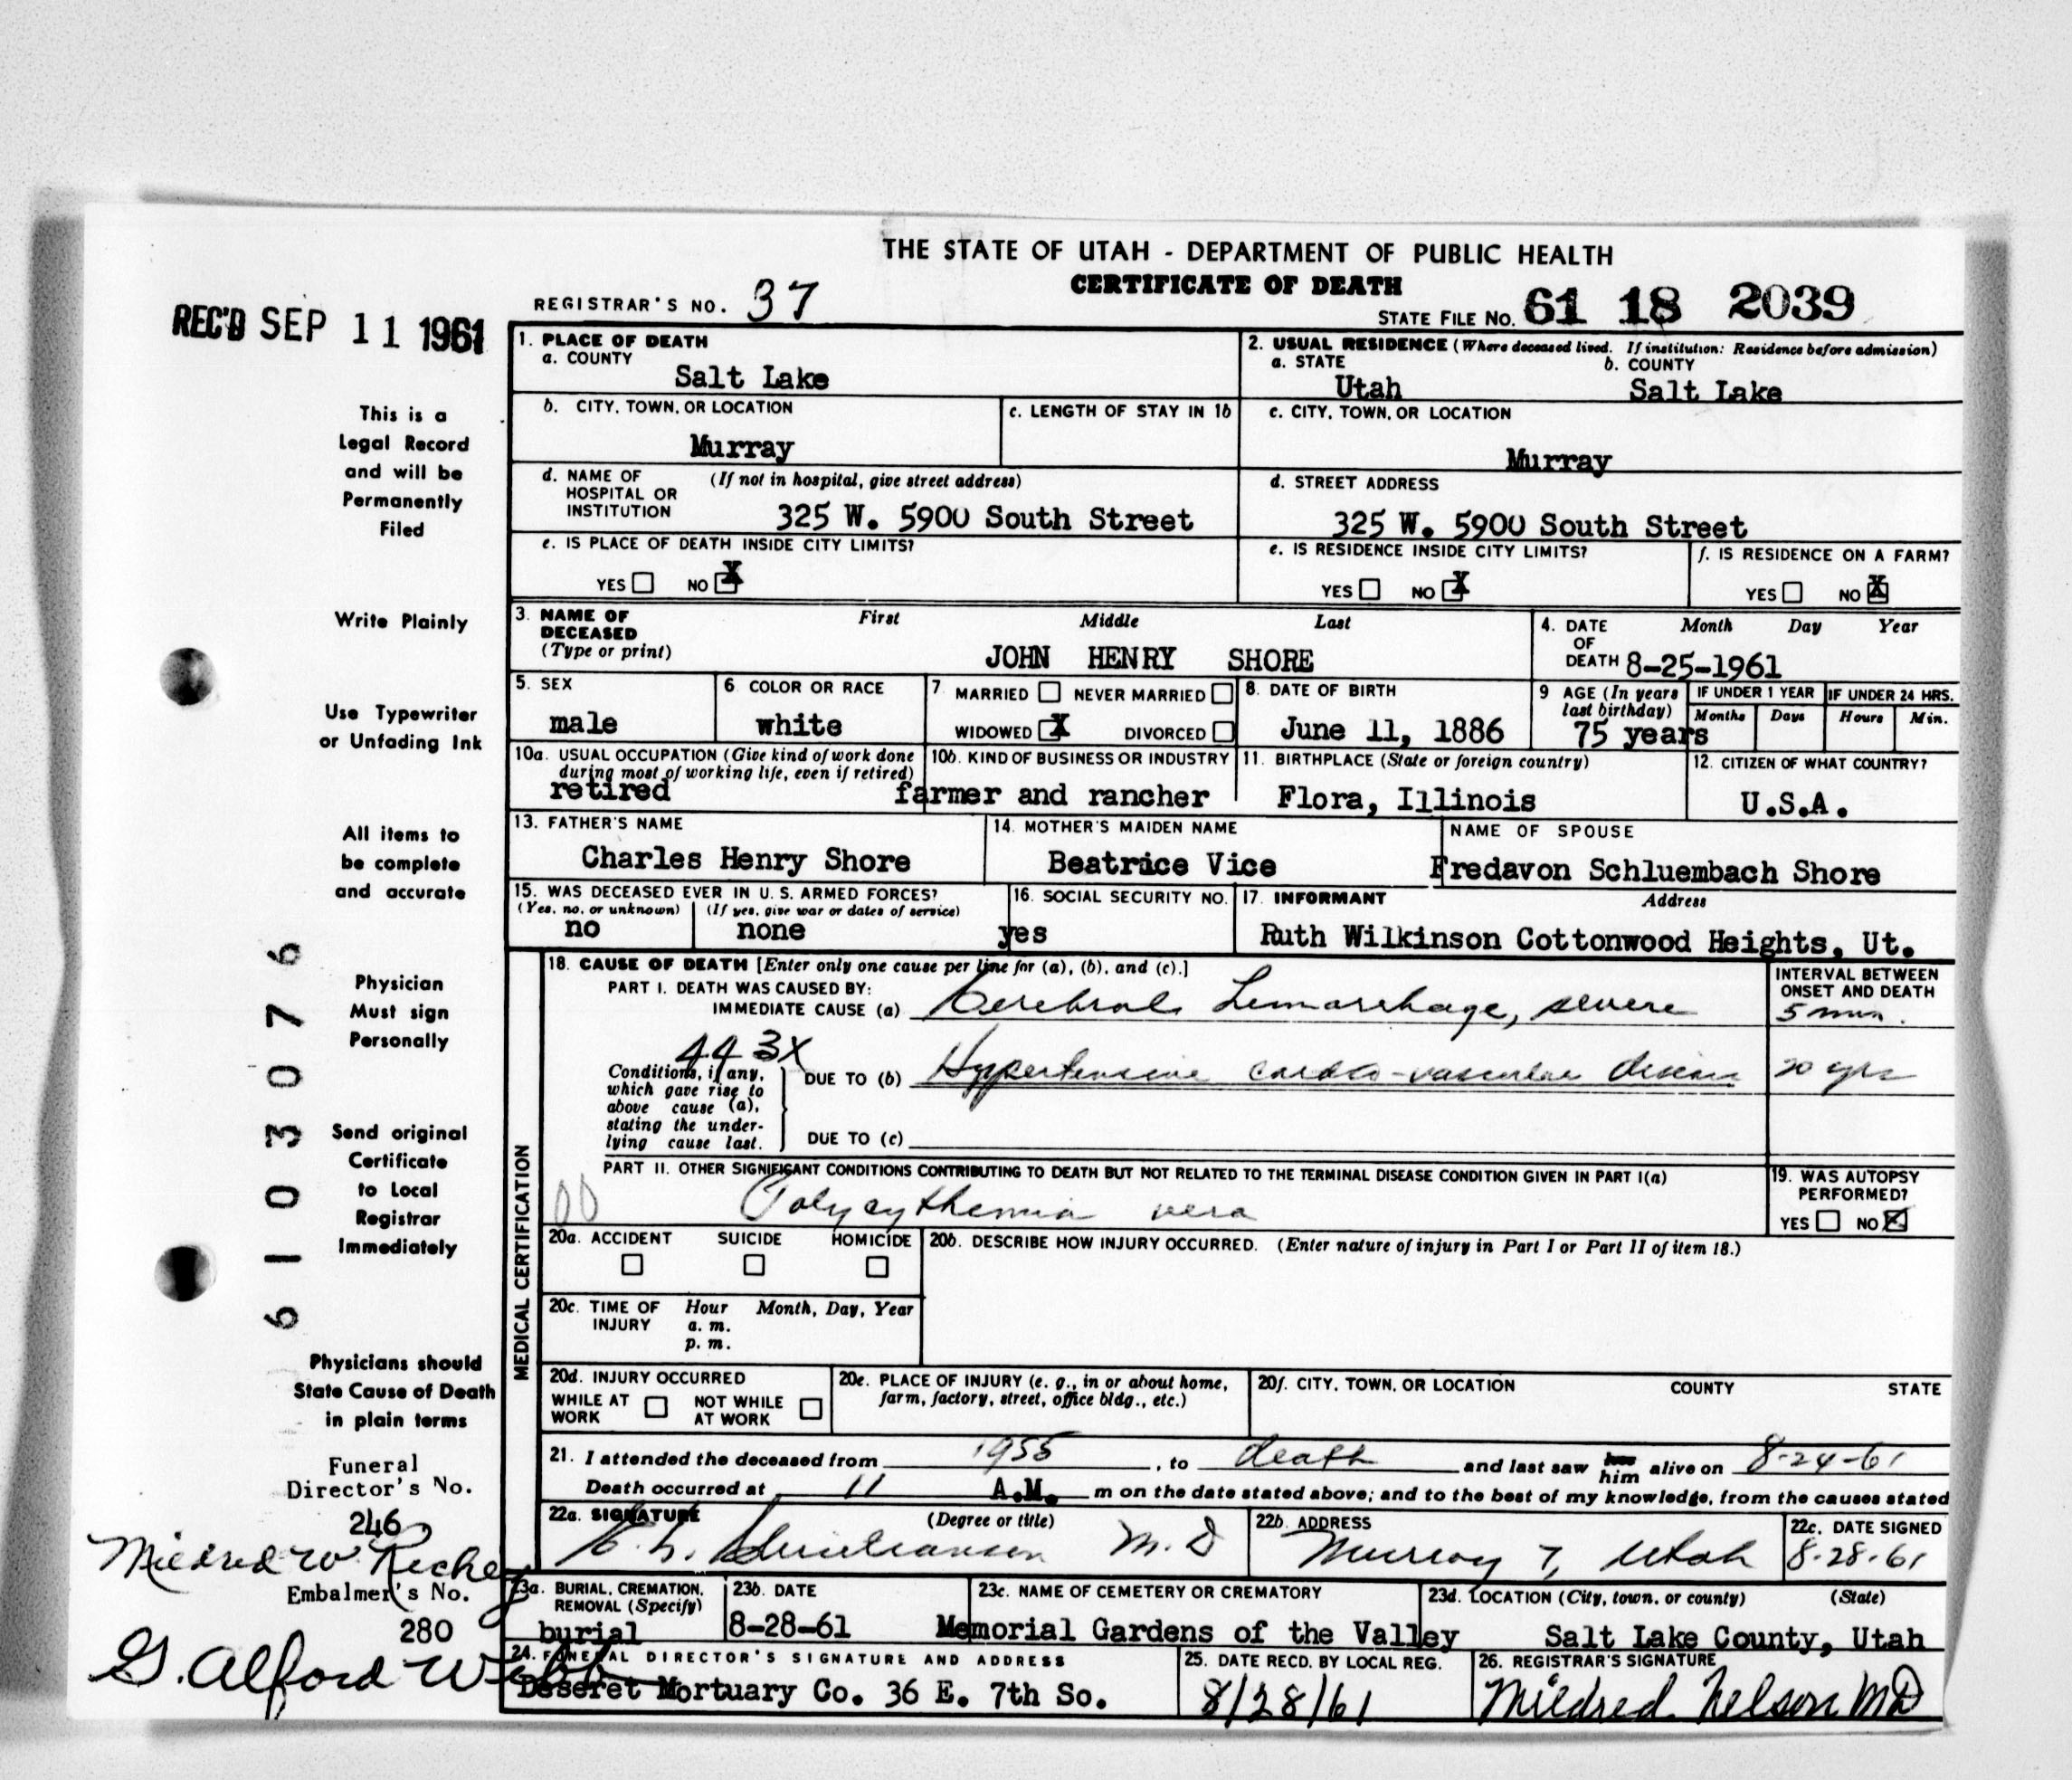 THE STATE OF UTAH - DEPARTMENT OF PUBLIC HEALTH
CERTIFICATE OF DEATH
REC'D SEP 11 1961
REGISTRAR'S NO. 37
STATE FILE NO. 61 18 2039
This is a
Legal Record
and will be
Permanently
Filed
Write Plainly
Use Typewriter
or Unfading Ink
All items to
be complete
and accurate
Physician
Must sign
Personally
Send original
Certificate
to Local
Registrar
Immediately
Physicians should
State Cause of Death
in plain terms
6103076
Funeral
Director's No.
246
Mildred W.
Embalmer's No.
280
G. Alford Webb
1. PLACE OF DEATH
a. COUNTY
Salt Lake
2. USUAL RESIDENCE (Where deceased lived. If institution: Residence before admission)
a. STATE b. COUNTY
Utah Salt Lake
b. CITY, TOWN, OR LOCATION
Murray
c. LENGTH OF STAY IN 1b
c. CITY, TOWN, OR LOCATION
Murray
d. NAME OF (If not in hospital, give street address)
HOSPITAL OR
INSTITUTION
325 W. 5900 South Street
d. STREET ADDRESS
325 W. 5900 South Street
e. IS PLACE OF DEATH INSIDE CITY LIMITS?
YES NO X
e. IS RESIDENCE INSIDE CITY LIMITS?
YES NO X
f. IS RESIDENCE ON A FARM?
YES NO X
3. NAME OF First Middle Last
DECEASED
(Type or print)
JOHN HENRY SHORE
4. DATE Month Day Year
OF
DEATH 8-25-1961
5. SEX
male
6. COLOR OR RACE
white
7. MARRIED NEVER MARRIED
WIDOWED X DIVORCED
8. DATE OF BIRTH
June 11, 1886
9 AGE (In years
last birthday)
75 years
IF UNDER 1 YEAR
Months Days
IF UNDER 24 HRS.
Hours Min.
10a. USUAL OCCUPATION (Give kind of work done
during most of working life, even if retired)
retired
10b. KIND OF BUSINESS OR INDUSTRY
farmer and rancher
11. BIRTHPLACE (State or foreign country)
Flora, Illinois
12. CITIZEN OF WHAT COUNTRY?
U.S.A.
13. FATHER'S NAME
Charles Henry Shore
14. MOTHER'S MAIDEN NAME
Beatrice Vice
NAME OF SPOUSE
Fredavon Schluembach Shore
15. WAS DECEASED EVER IN U. S. ARMED FORCES?
(Yes, no, or unknown) (If yes, give war or dates of service)
no none
16. SOCIAL SECURITY NO.
yes
17. INFORMANT Address
Ruth Wilkinson Cottonwood Heights, Ut.
MEDICAL CERTIFICATION
18. CAUSE OF DEATH [Enter only one cause per line for (a), (b), and (c).]
PART I. DEATH WAS CAUSED BY:
IMMEDIATE CAUSE (a) Cerebral hemorrhage, severe
INTERVAL BETWEEN
ONSET AND DEATH
5 min.
443X
Conditions, if any,
which gave rise to
above cause (a),
stating the under-
lying cause last.
DUE TO (b) Hypertensive cardio-vascular disease 20 yrs
DUE TO (c)
PART II. OTHER SIGNIFICANT CONDITIONS CONTRIBUTING TO DEATH BUT NOT RELATED TO THE TERMINAL DISEASE CONDITION GIVEN IN PART I(a)
Polycythemia vera
19. WAS AUTOPSY
PERFORMED?
YES NO X
20a. ACCIDENT SUICIDE HOMICIDE
20b. DESCRIBE HOW INJURY OCCURRED. (Enter nature of injury in Part I or Part II of item 18.)
20c. TIME OF Hour Month, Day, Year
INJURY a. m.
p. m.
20d. INJURY OCCURRED
WHILE AT NOT WHILE
WORK AT WORK
20e. PLACE OF INJURY (e. g., in or about home,
farm, factory, street, office bldg., etc.)
20f. CITY, TOWN, OR LOCATION COUNTY STATE
21. I attended the deceased from 1955, to death and last saw her him alive on 8-24-61
Death occurred at 11 A.M. m on the date stated above; and to the best of my knowledge, from the causes stated
22a. SIGNATURE (Degree or title)
Christiansen M.D
22b. ADDRESS
Murray 7, Utah
22c. DATE SIGNED
8-28-61
23a. BURIAL, CREMATION,
REMOVAL (Specify)
burial
23b. DATE
8-28-61
23c. NAME OF CEMETERY OR CREMATORY
Memorial Gardens of the Valley
23d. LOCATION (City, town, or county) (State)
Salt Lake County, Utah
24. FUNERAL DIRECTOR'S SIGNATURE AND ADDRESS
Deseret Mortuary Co. 36 E. 7th So.
25. DATE RECD. BY LOCAL REG.
8/28/61
26. REGISTRAR'S SIGNATURE
Mildred Nelson MD